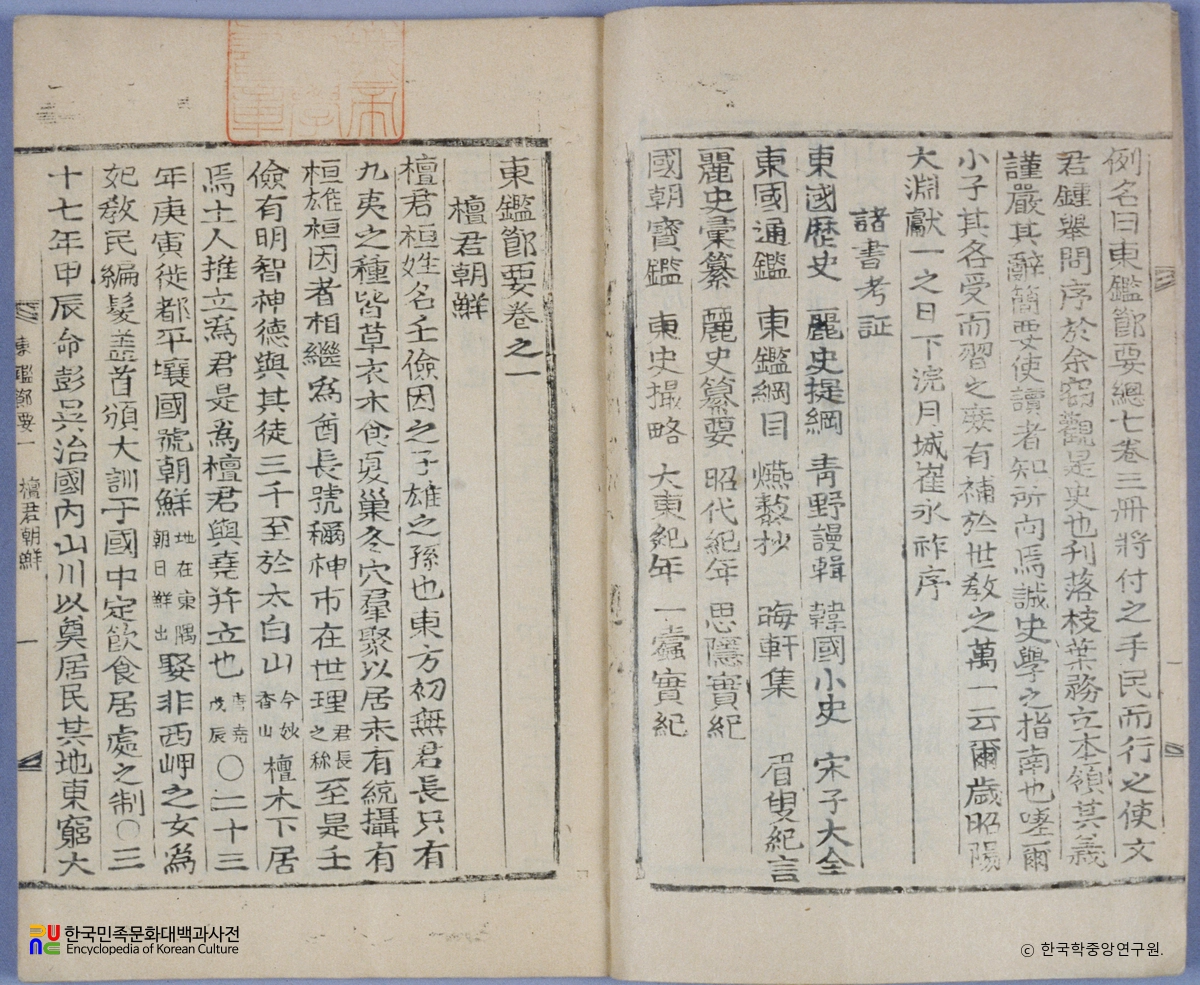 例名曰東鑑節要總七卷三冊將付之手民而行之使文
君鍾擧問序於余窃觀是史也刋落枝葉務立本領其義
謹嚴其辭簡要使讀者知所向焉誠史學之指南也噫爾
小子其各受而習之庶有補於世敎之萬一云爾歲昭陽
大淵獻一之日下浣月城崔永祚序
諸書考証
東國歷史 麗史提綱 靑野謾輯 韓國小史 宋子大全
東國通鑑 東鑑綱目 燃藜抄 晦軒集 眉叟紀言
麗史彙纂 麗史纂要 昭代紀年 思隱實紀
國朝寶鑑 東史撮略 大東紀年 一蠹實紀
東鑑節要卷之一
檀君朝鮮
檀君桓姓名壬儉因之子雄之孫也東方初無君長只有
九夷之種皆草衣木食夏巢冬穴羣聚以居未有統攝有
桓雄桓因者相繼爲酋長號穪神市在世理君長之稱至是壬
儉有明智神德與其徒三千至於太白山今妙香山檀木下居
焉土人推立爲君是爲檀君與堯幷立也唐堯戊辰〇二十三
年庚寅徙都平壤國號朝鮮地在東隅朝日鮮出娶非西岬之女爲
妃敎民編髮盖首頒大訓于國中定飮食居處之制〇三
十七年甲辰命彭吳治國內山川以奠居民其地東窮大
東鑑節要一 檀君朝鮮 一
한국민족문화대백과사전
Encyclopedia of Korean Culture
© 한국학중앙연구원.